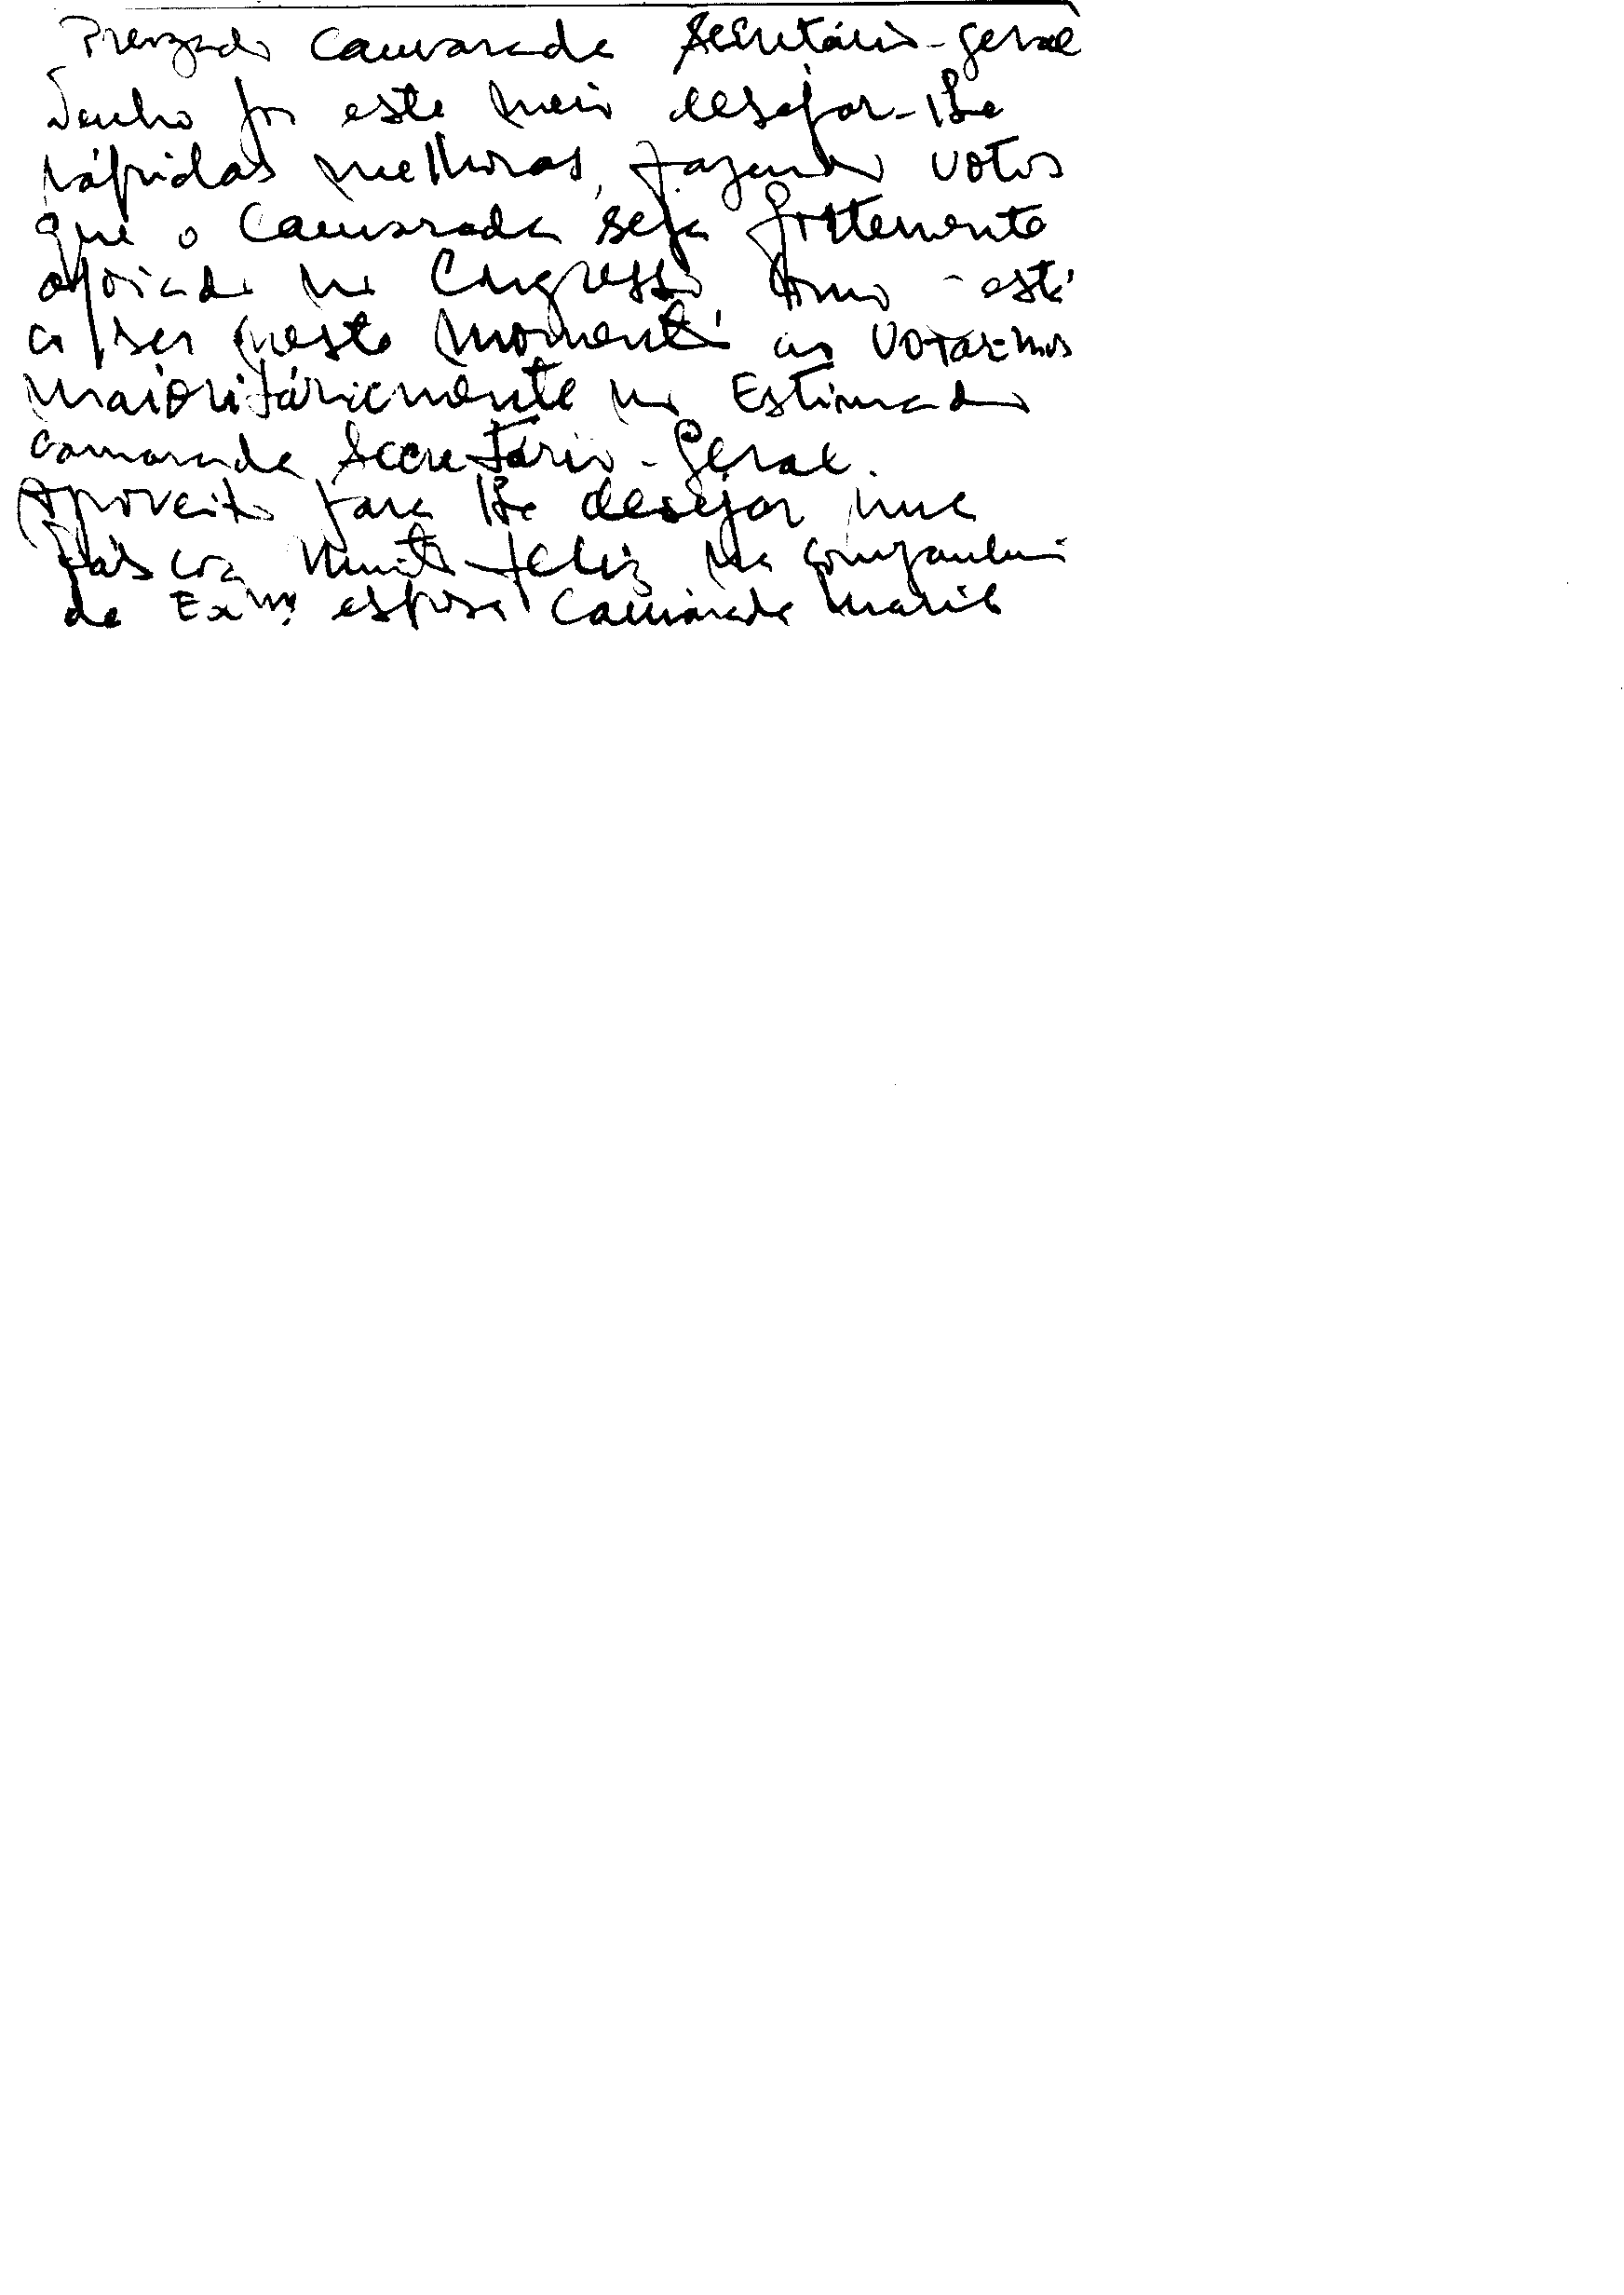 Prezado Camarada Secretário-geral
Venho por este meio desejar-lhe
rápidas melhoras, fazendo votos
que o Camarada seja fortemente
apoiado no Congresso como está
a ser neste momento ao votarmos
maioritáriamente no Estimado
Camarada Secretário-Geral.
Aproveito para lhe desejar uma
Páscoa muito feliz na companhia
de Exmª esposa Camarada Maria